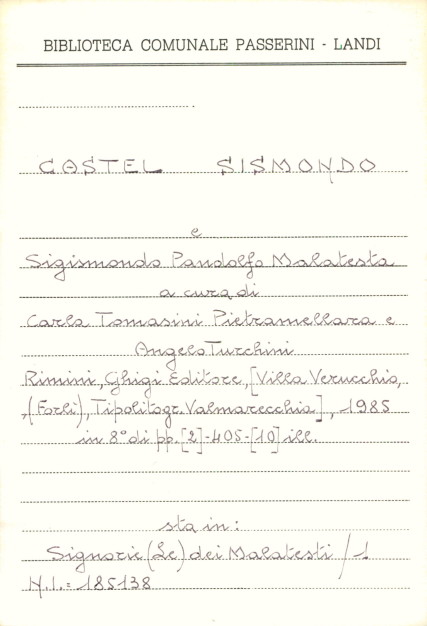 BIBLIOTECA COMUNALE PASSERINI - LANDI
CASTEL SISMONDO
e
Sigismondo Pandolfo Malatesta
a cura di
Carla Tomasini Pietramellara e
Angelo Turchini
Rimini, Ghigi Editore, [Villa Verucchio,
(Forlì), Tipolitogr. Valmarecchia], 1985
in 8° di pp. [2]-405-[10] ill.
sta in:
Signorie (Le) dei Malatesti / 1
N.I.: 185138